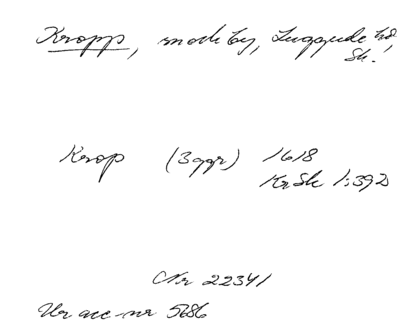 Kropp, snockby, Luggude hd,
Sk.
Krop (3ggr) 1618
Kr Sk 1:392
Nr 22341
Ur acc-nr 5686